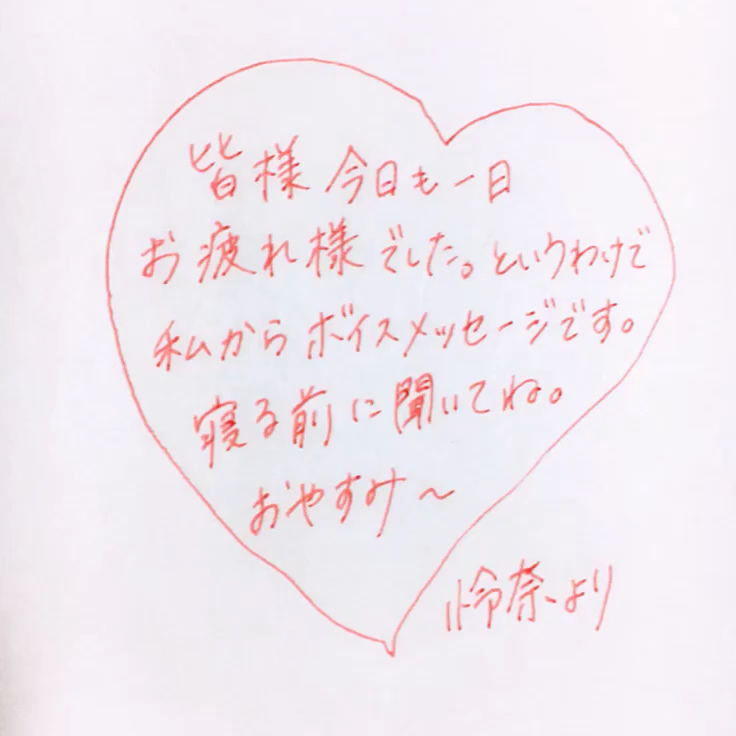 皆様 今日も一日
お疲れ様でした。というわけで
私からボイスメッセージです。
寝る前に聞いてね。
おやすみ〜
怜奈より